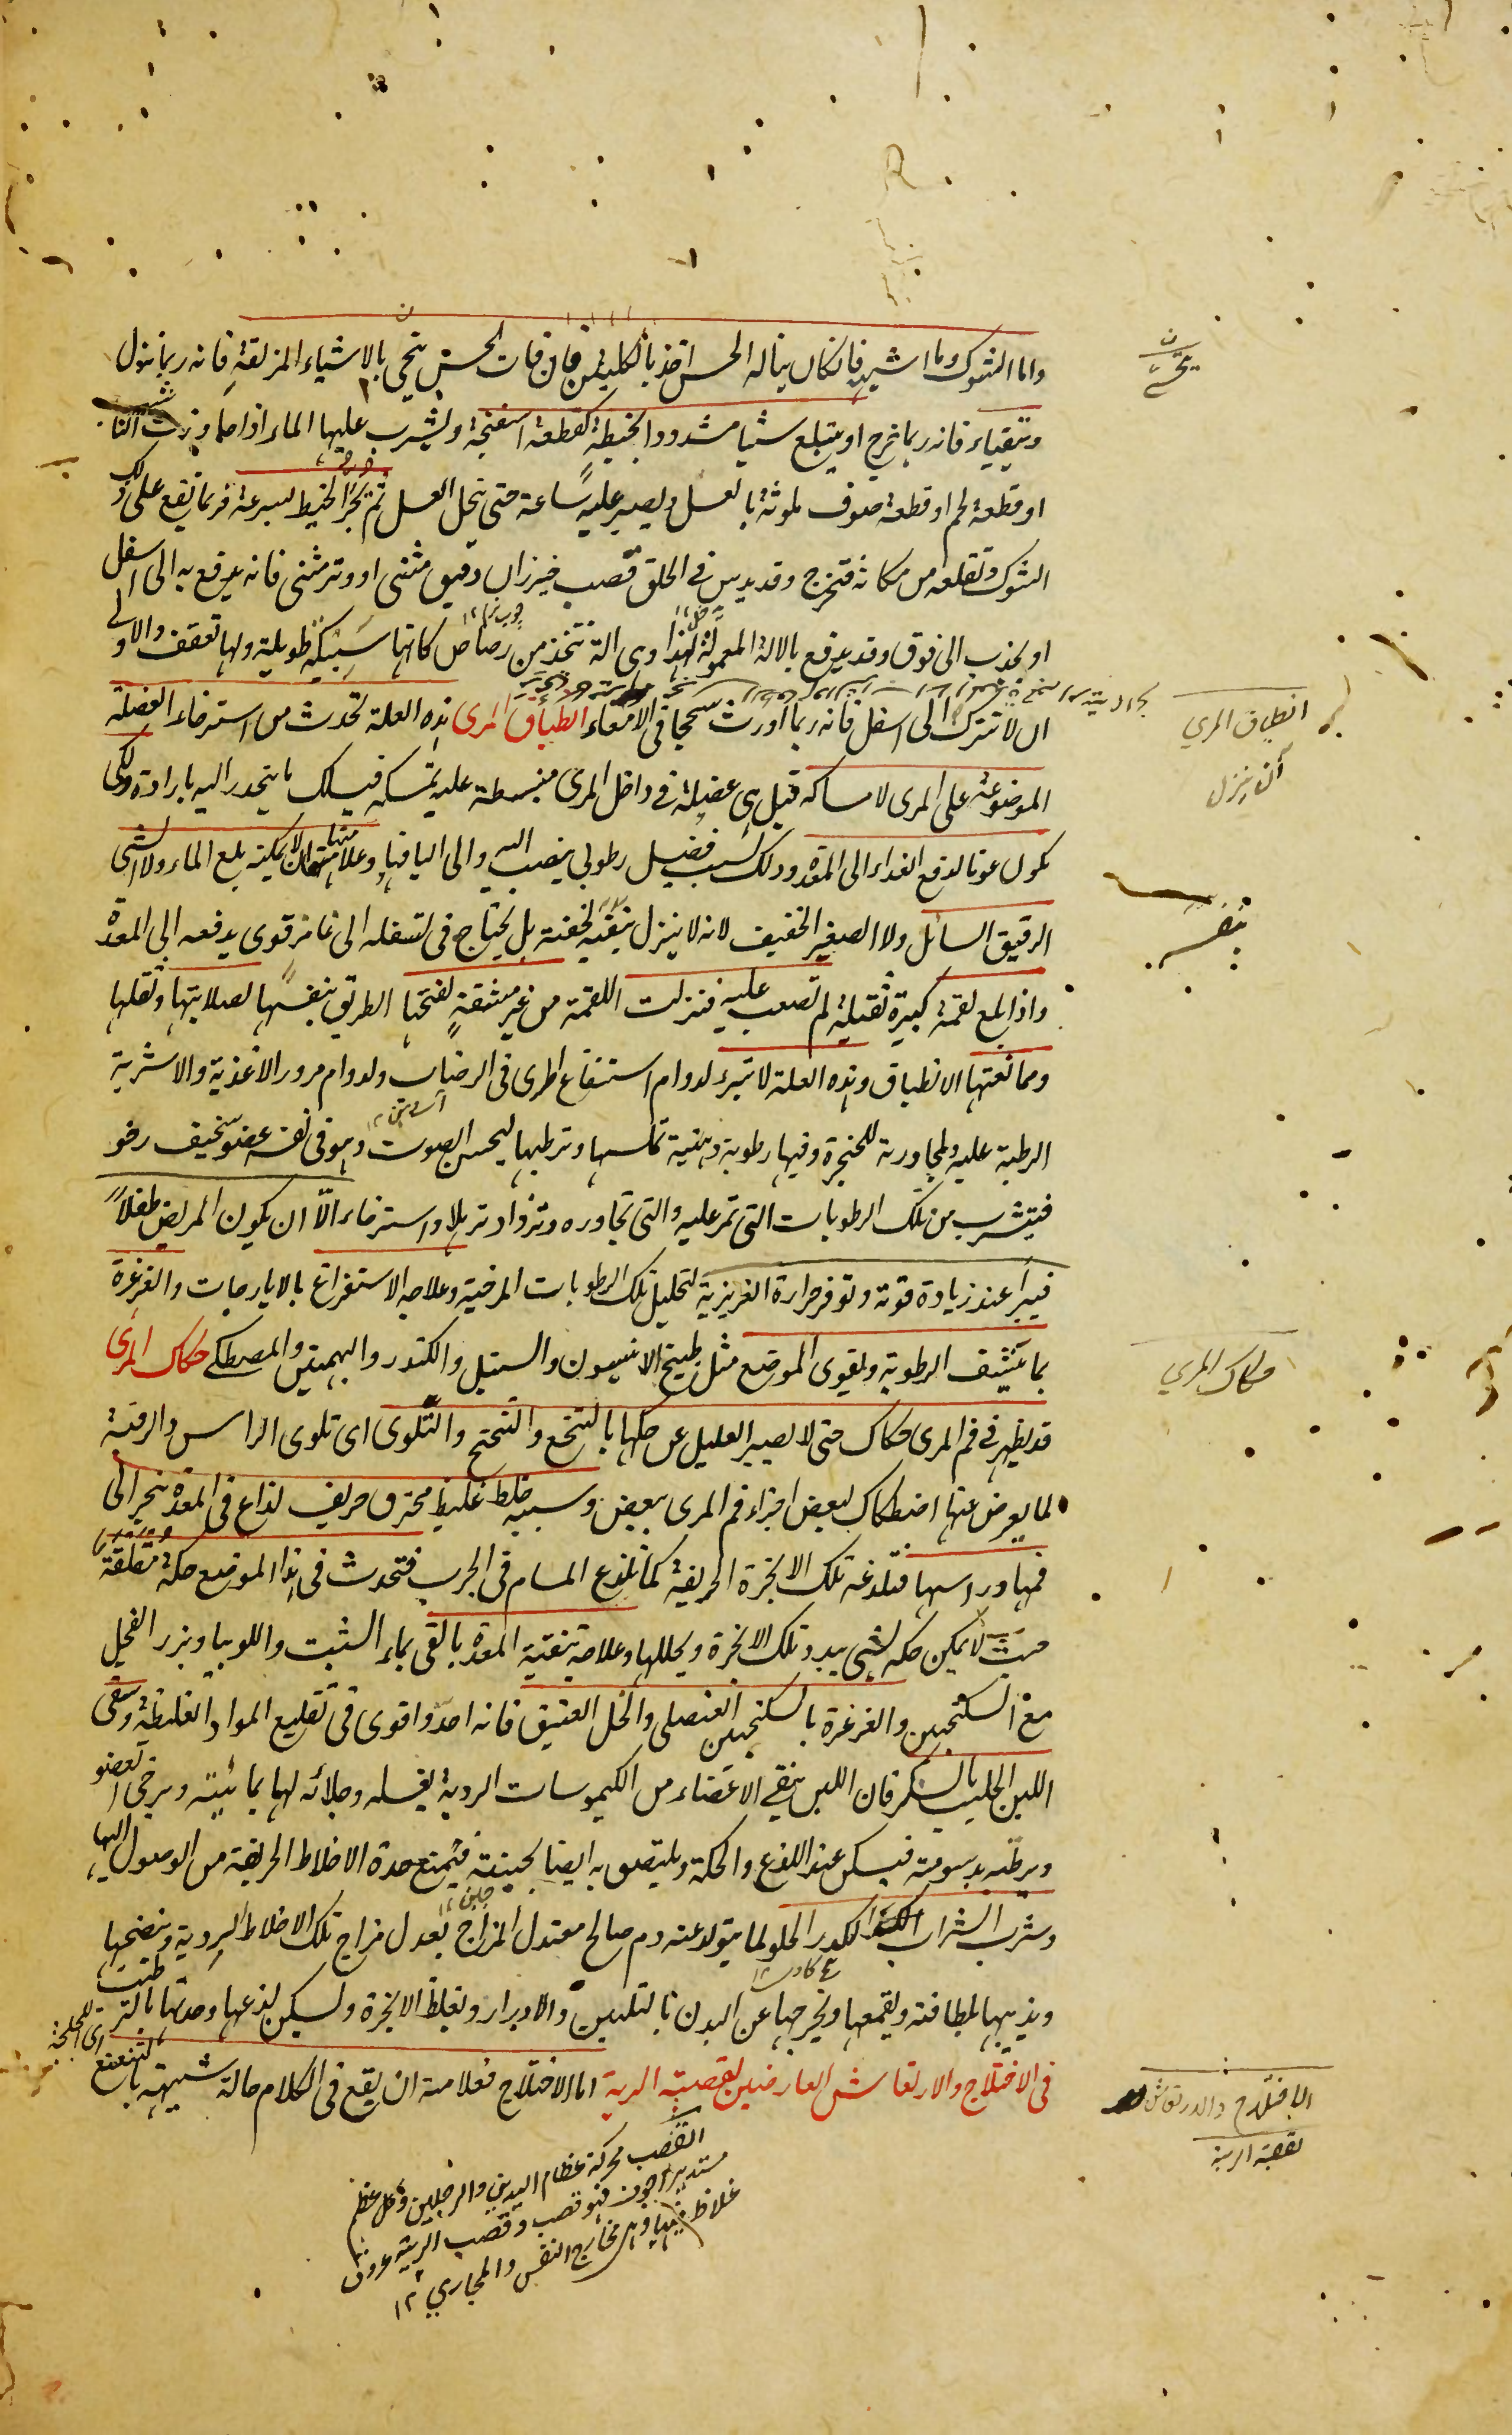 واما الشوك وما اشبهه فان كان يناله الحس اخذ بالكلبتين فان فات الحس يتحى بالاشياء المزلقة فانه ربما نزل
ويتقياء فانه ربما خرج او يبتلع شيا مشدودا بخيطة كقطعة اسفنجة ويشرب عليها الماء اذا
او قطعة لحم او قطعة صوف ملوثة بالعسل ويصبر عليه ساعة حتى ينحل العسل ثم يجر الخيط بسرعة فربما تقع على ذلك
الشوك وتقلعه من مكانه فتخرج وقد يدس فى الحلق قصب خيزران دقيق مثنى او وتر مثنى فانه يدفع به الى اسفل
او يجذب الى فوق وقد يدفع بالالة المعمولة لهذا وهى الة تتخذ من رصاص كانها سبيكة طويلة ولها تعقف والاولى
ان لا تترك الى اسفل فانه ربما اورث سحجا فى الامعاء انطباق المرى هذه العلة تحدث من استرخاء العضلة
الموضوعة على المرى لامساكه قيل هى عضلة فى داخل المرى منبسطة عليه تمسكه فيسلك ما ينحدر اليه بارادة ولكى
يكون عونا لدفع الغذاء الى المعدة وذلك لسبب فضل رطوبى ينصب اليه والى اليافها وعلامتها ان لا يمكنه بلع الماء ولا الشى
الرقيق السائل ولا الصغير الخفيف لانه لا ينزل بنفسه لخفته بل يحتاج فى تسفله الى غامز قوى يدفعه الى المعدة
واذا بلع لقمة كبيرة ثقيلة لم تصعب عليه فنزلت اللقمة من غير مشقة لفتحها الطريق بنفسها لصلابتها وثقلها
وممانعتها الانطباق وهذه العلة لا تبرء لدوام استنقاع المرى فى الرضاب ولدوام مرور الاغذية والاشربة
الرطبة عليه ولمجاورته للحنجرة وفيها رطوبة دهنية تملسها وترطبها ليحسن الصوت وهو فى نفسه عضو سخيف رخو
فيتشرب من تلك الرطوبات التى تمر عليه والتى تجاوره وتزداد ترهلا واسترخاء الّا ان يكون المريض طفلاً
فيبرأ عند زيادة قوته وتوفر حرارة الغريزية لتحليل تلك الرطوبات المرخية وعلاجه الاستفراغ بالايارجات والغرغرة
بما ينشف الرطوبة ويقوى الموضع مثل طبيخ الانيسون والسنبل والكندر والبهمنين والمصطكى حكاك المرى
قد يظهر فى فم المرى حكاك حتى لا يصبر العليل عن حكها بالتنخع والتنحنح والتلوى اى تلوى الراس والرقبة
لما يعرض عنها اصطكاك لبعض اجزاء فم المرى ببعض وسببه خلط غليظ محترق حريف لذاع فى المعدة بتبخر الى
فمها وراسها فتلدغه تلك الابخرة الحريفة كما تلذع المسام فى الجرب فتحدث فى هذا الموضع حكة مقلقة
حيث لا يمكن حكه بشى يبدد تلك الابخرة ويحللها وعلاجه تنقية المعدة بالقى بماء الشبت واللوبيا وبزر الفجل
مع السكنجبين والغرغرة بالسكنجبين العنصلى والخل العتيق فانه احد واقوى فى تقليع المواد الغليظة وسقى
اللبن الحليب بالسكر فان اللبن ينقى الاعضاء من الكيموسات الردية بغسله وجلائه لها بمائيته ويرخى العضو
ويرطبه بدسومته فيسكن عنه اللذع والحكة ويلتصق به ايضا بجبنيته فيمنع حدة الاخلاط الحريفة من الوصول اليها
وشرب الشراب الكدر الحلو لما يتولد عنه دم صالح معتدل المزاج يعدل مزاج تلك الاخلاط الردية وينضجها
ويذيبها بلطافته ويقمعها ويخرجها عن البدن بالتليين والادرار وتغليظ الابخرة وتسكين لذعها وحدتها بالترطيب
فى الاختلاج والارتعاش العارضين لقصبة الرية اما الاختلاج فعلامته ان يقع فى الكلام حالة شبيهة بالتتعتع
انطباق المري
حكاك المري
الاختلاج والارتعاش
لقصبة الرية
القصب محركة عظام اليدين والرجلين وكل عظم
مستدير اجوف فهو قصب وقصب الرية عروق
غلاظ فيها وهى مخارج النفس والمجاري ١٢